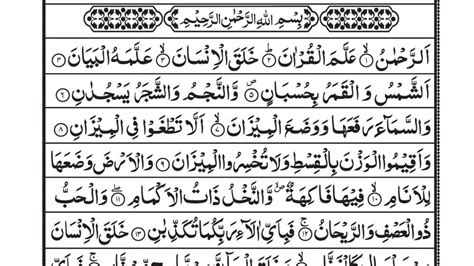 بِسْمِ اللهِ الرَّحْمٰنِ الرَّحِيْمِ
اَلرَّحْمٰنُ ۝۱ عَلَّمَ الْقُرْاٰنَ ۝۲ خَلَقَ الْاِنْسَانَ ۝۳ عَلَّمَهُ الْبَيَانَ ۝۴
اَلشَّمْسُ وَالْقَمَرُ بِحُسْبَانٍ ۝۵ وَّالنَّجْمُ وَالشَّجَرُ يَسْجُدٰنِ ۝۶
وَالسَّمَآءَ رَفَعَهَا وَوَضَعَ الْمِيْزَانَ ۝۷ اَلَّا تَطْغَوْا فِى الْمِيْزَانِ ۝۸
وَاَقِيْمُوا الْوَزْنَ بِالْقِسْطِ وَلَا تُخْسِرُوا الْمِيْزَانَ ۝۹ وَالْاَرْضَ وَضَعَهَا
لِلْاَنَامِ ۝۱۰ فِيْهَا فَاكِهَةٌ وَّالنَّخْلُ ذَاتُ الْاَكْمَامِ ۝۱۱ وَالْحَبُّ
ذُو الْعَصْفِ وَالرَّيْحَانُ ۝۱۲ فَبِاَىِّ اٰلَآءِ رَبِّكُمَا تُكَذِّبٰنِ ۝۱۳ خَلَقَ الْاِنْسَانَ